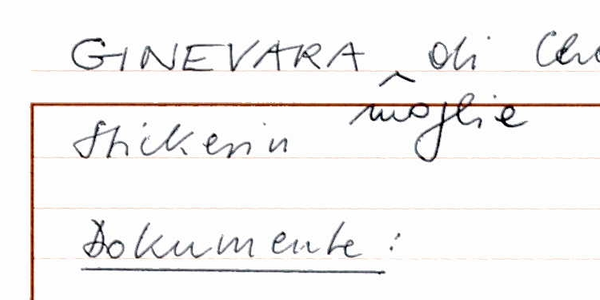 GINEVARA di
moglie
Stickerin
Dokumente: